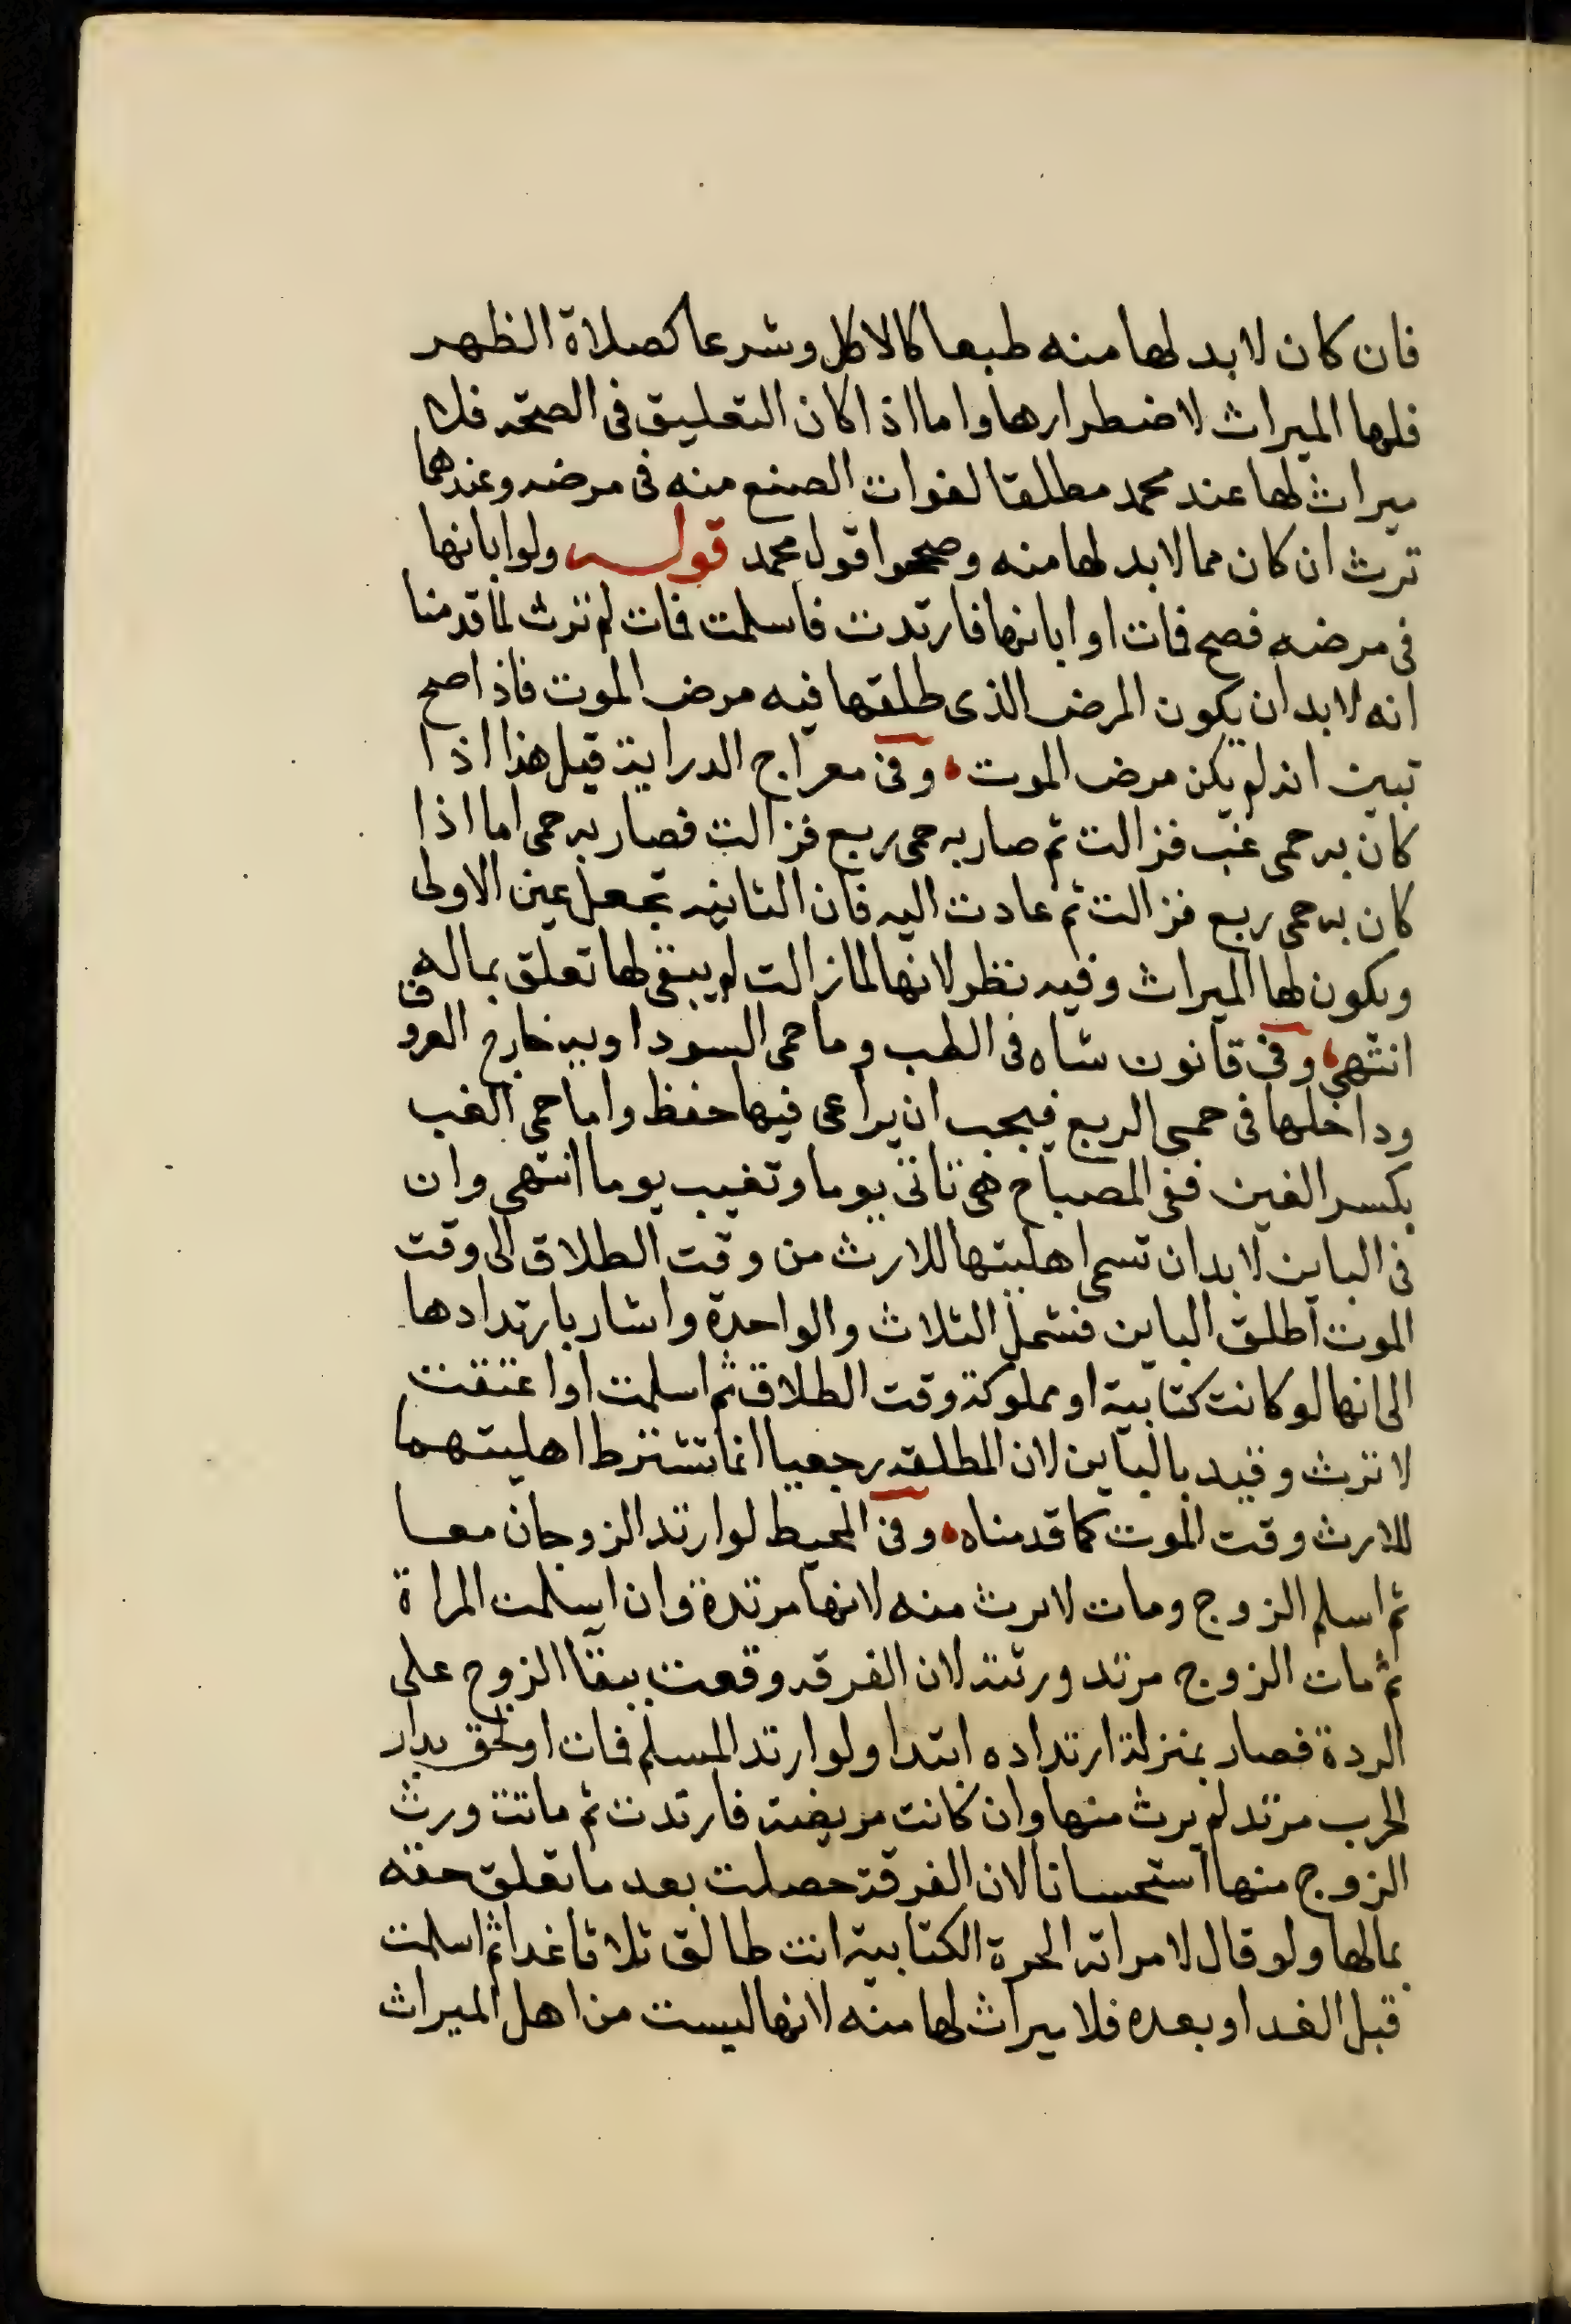 فان كان لابد لها منه طبعا كالاكل وشرعا كصلاة الظهر
فلها الميراث لاضطرارها واما اذا كان التعليق فى الصحة فلا
ميراث لها عند محمد مطلقا لفوات الصنع منه فى مرضه وعندهما
ترث ان كان مما لابد لها منه وصححوا قول محمد قوله ولو ابانها
فى مرضه فصح فمات او ابانها فارتدت فاسلمت فمات لم ترث لما قدمنا
انه لابد ان يكون المرض الذى طلقها فيه مرض الموت فاذا صح
تبين انه لم يكن مرض الموت وفى معراج الدراية قيل هذا اذا
كان به حمى غب فزالت ثم صار به حمى ربع فزالت فصار به حمى اما اذا
كان به حمى ربع فزالت ثم عادت اليه فان الثانيه تجعل عين الاولى
ويكون لها الميراث وفيه نظر لانها لما زالت لم يبقى لها تعلق بماله
انتهى وفى قانون شاه فى الطب وما حمى السودا وبيه خارج العروق
وداخلها فى حمى الربع فيجب ان يراعى فيها حفظ واما حمى الغب
بكسر الغين ففى المصباح هى تاتى يوما وتغيب يوما انتهى وان
فى الباين لابد ان تسمى اهليتها للارث من وقت الطلاق الى وقت
الموت اطلق الباين فشمل الثلاث والواحدة واشار بارتدادها
الى انها لو كانت كتابية او مملوكة وقت الطلاق ثم اسلمت او اعتقت
لا ترث وقيد بالباين لان المطلقه رجعيا انما تشترط اهليتهما
للارث وقت الموت كما قدمناه وفى المحيط لو ارتد الزوجان معا
ثم اسلم الزوج ومات لا يرث منه لانها مرتدة وان اسلمت المراة
ثم مات الزوج مرتد ورثته لان الفرقه وقعت ببقا الزوج على
الردة فصار بمنزلة ارتداده ابتدا ولو ارتد المسلم فمات او لحق بدار
الحرب مرتد لم يرث منها وان كانت مريضة فارتدت ثم ماتت ورث
الزوج منها استحسانا لان الفرقة حصلت بعد ما تعلق حقه
بمالها ولو قال لامراته الحرة الكتابية انت طالق ثلاثا غدا ثم اسلمت
قبل الغد او بعده فلا ميراث لها منه لانها ليست من اهل الميراث